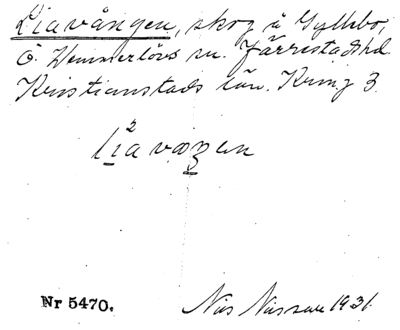 Liavången, skog å Gyllebo,
Ö. Vemmerlövs sn. Järrestads hd.
Kristianstads län. Kring 3.
Nr 5470.
Nils Nilsson 1931.